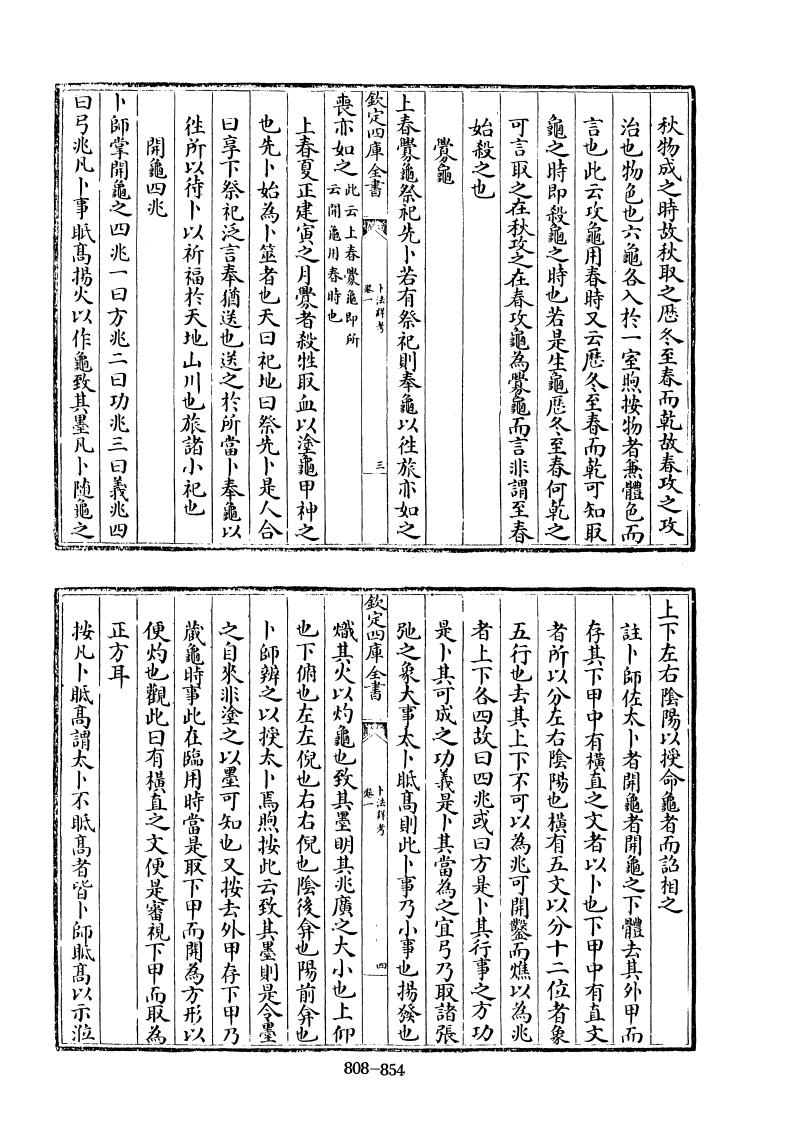 秋物成之時故秋取之厯冬至春而乾故春攻之攻
治也物色也六龜各入於一室煦按物者兼體色而
言也此云攻龜用春時又云厯冬至春而乾可知取
龜之時即殺龜之時也若是生龜厯冬至春何乾之
可言取之在秋攻之在春攻龜為釁龜而言非謂至春
始殺之也
釁龜
上春釁龜祭祀先卜若有祭祀則奉龜以徃旅亦如之
欽定四庫全書
卜法詳考
卷一
三
喪亦如之此云上春釁龜即所
云開龜用春時也
上春夏正建寅之月釁者殺牲取血以塗龜甲神之
也先卜始為卜筮者也天曰祀地曰祭先卜是人合
曰享下祭祀泛言奉猶送也送之於所當卜奉龜以
徃所以待卜以祈福於天地山川也旅諸小祀也
開龜四兆
卜師掌開龜之四兆一曰方兆二曰功兆三曰義兆四
曰弓兆凡卜事眡髙揚火以作龜致其墨凡卜随龜之
上下左右陰陽以授命龜者而詔相之
註卜師佐太卜者開龜者開龜之下體去其外甲而
存其下甲中有横直之文者以卜也下甲中有直文
者所以分左右陰陽也横有五文以分十二位者象
五行也去其上下不可以為兆可開鑿而燋以為兆
者上下各四故曰四兆或曰方是卜其行事之方功
是卜其可成之功義是卜其當為之宜弓乃取諸張
弛之象大事太卜眡髙則此卜事乃小事也揚發也
欽定四庫全書
卜法詳考
卷一
四
熾其火以灼龜也致其墨明其兆廣之大小也上仰
也下俯也左左倪也右右倪也陰後弇也陽前弇也
卜師辨之以授太卜焉煦按此云致其墨則是令墨
之自來非塗之以墨可知也又按去外甲存下甲乃
蔵龜時事此在臨用時當是取下甲而開為方形以
便灼也觀此曰有横直之文便是審視下甲而取為
正方耳
按凡卜眡髙謂太卜不眡髙者皆卜師眡髙以示涖
808-854